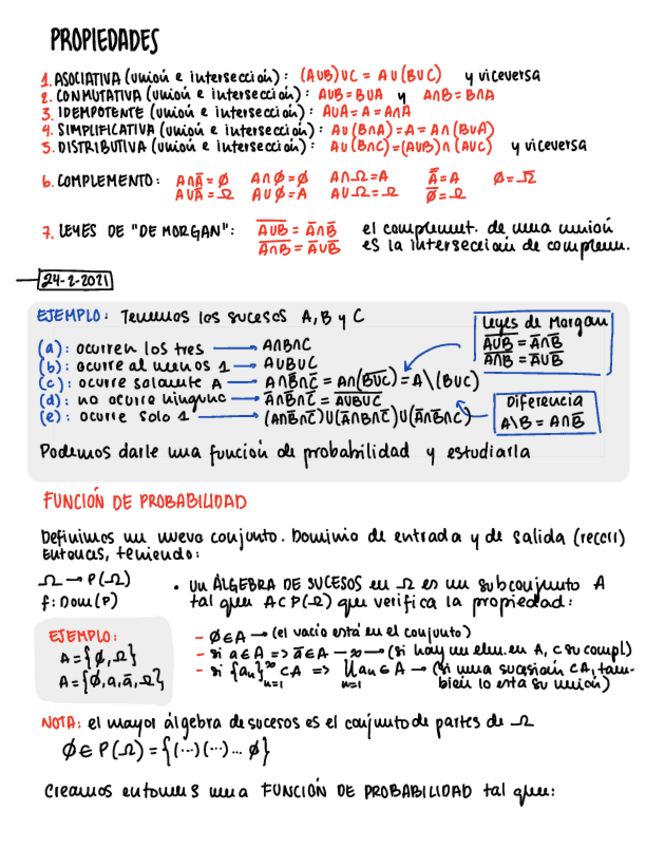 PROPIEDADES
1. ASOCIATIVA (unión e intersección): (A∪B)∪C = A∪(B∪C) y viceversa
2. CONMUTATIVA (unión e intersección): A∪B=B∪A y A∩B=B∩A
3. IDEMPOTENTE (unión e intersección): A∪A=A=A∩A
4. SIMPLIFICATIVA (unión e intersección): A∪(B∩A)=A=A∩(B∪A)
5. DISTRIBUTIVA (unión e intersección): A∪(B∩C)=(A∪B)∩(A∪C) y viceversa
6. COMPLEMENTO: A∩A̅=Ø A∩Ø=Ø A∩Ω=A A̿=A Ø=Ω̅
A∪A̅=Ω A∪Ø=A A∪Ω=Ω Ø̅=Ω
7. LEYES DE "DE MORGAN": A̅∪̅B̅ = A̅∩B̅ el complement. de una unión
A̅∩̅B̅ = A̅∪B̅ es la intersección de complem.
24-2-2021
EJEMPLO: Tenemos los sucesos A, B y C
Leyes de Morgan
A̅∪̅B̅ = A̅∩B̅
A̅∩̅B̅ = A̅∪B̅
(a): ocurren los tres → A∩B∩C
(b): ocurre al menos 1 → A∪B∪C
(c): ocurre solamente A → A∩B̅∩C̅ = A∩(B̅∪̅C̅) = A\(B∪C)
(d): no ocurre ninguno → A̅∩B̅∩C̅ = A̅∪̅B̅∪̅C̅
(e): ocurre solo 1 → (A∩B̅∩C̅)∪(A̅∩B∩C̅)∪(A̅∩B̅∩C)
Diferencia
A\B = A∩B̅
Podemos darle una función de probabilidad y estudiarla
FUNCIÓN DE PROBABILIDAD
Definimos un nuevo conjunto. Dominio de entrada y de salida (recorr)
Entonces, teniendo:
Ω → P(Ω)
f: Dom(P)
• Un ÁLGEBRA DE SUCESOS en Ω es un subconjunto A
tal que A⊂P(Ω) que verifica la propiedad:
EJEMPLO:
A={Ø,Ω}
A={Ø,a,a̅,Ω}
- Ø∈A → (el vacío está en el conjunto)
- si a∈A => a̅∈A → (si hay un elem. en A, c su compl)
- si {an}∞n=1 ⊂A => ∪n=1 an∈A → (si una sucesión ⊂A, tam-
bién lo está su unión)
NOTA: el mayor álgebra de sucesos es el conjunto de partes de Ω
Ø∈P(Ω)={(...)(...)... Ø}
Creamos entonces una FUNCIÓN DE PROBABILIDAD tal que: